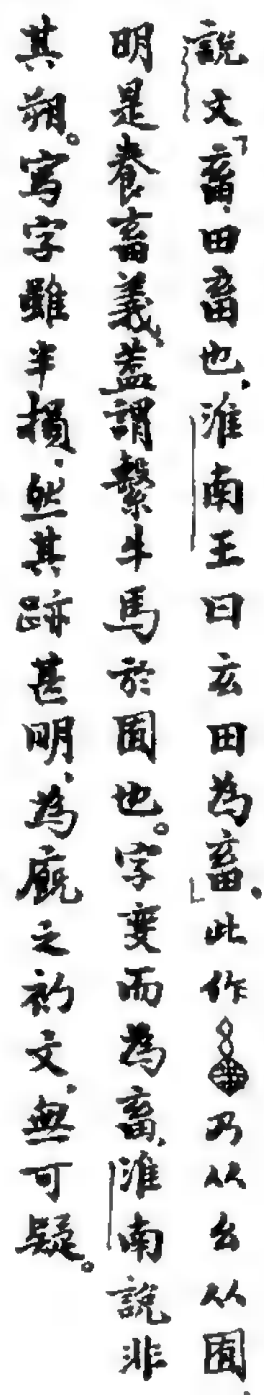 說文「畜、田畜也、淮南王曰玄田為畜」、此作乃从幺从囿、
明是養畜義、蓋謂繫牛馬於囿也。字變而為畜、淮南說非
其朔。寫字雖半損、然其跡甚明、為廄之初文、無可疑。